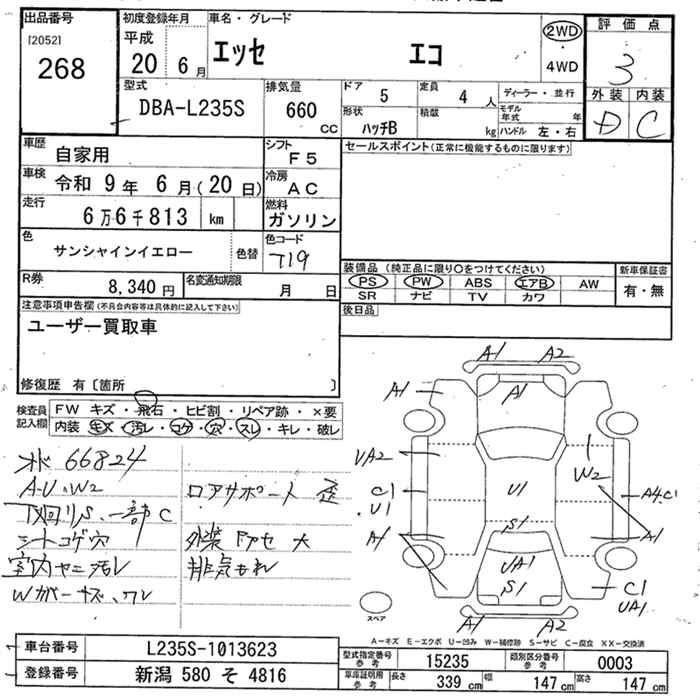 出品番号
[2052]
268
初度登録年月
平成
20 6月
車名・グレード
エッセ エコ
2WD
4WD
評価点
3
外装 内装
D C
型式
DBA-L235S
排気量
660 cc
ドア 5
定員 4 人
形状 ハッチB
積載 kg
ディーラー・並行
モデル年式 年
ハンドル 左・右
車歴 自家用
シフト F5
車検 令和 9年 6月(20日)
冷房 AC
走行 6万6千813 km
燃料 ガソリン
色 サンシャインイエロー 色替
色コード T19
R券 8,340円
名変通知期限 月 日
注意事項申告欄(不具合内容等は具体的に記入して下さい)
ユーザー買取車
修復歴 有〔箇所 〕
セールスポイント(正常に機能するものに限ります)
装備品(純正品に限り○をつけてください)
PS PW ABS エアB AW
SR ナビ TV カワ
新車保証書
有・無
後日品
検査員記入欄
FW キズ・飛石・ヒビ割・リペア跡・×要
内装 キズ・汚レ・コゲ・穴・スレ・キレ・破レ
66824
A・U・W2
下廻りS、一部C
シートコゲ穴
室内ヤニ汚レ
Wガーキズ、ワレ
ロアサポート 歪
外装 大
排気もれ
A1 A2
A1 A1
UA2
W2
C1
U1
U1
A4.C1
S1
A1
A1
UA1
S1
C1
UA1
A1 A2
スペア
A-キズ E-エクボ U-凹み W-補修跡 S-サビ C-腐食 XX-交換済
車台番号 L235S-1013623
登録番号 新潟 580 そ 4816
型式指定番号 参考 15235
類別区分番号 参考 0003
車庫証明用 参考
長さ 339 cm 幅 147 cm 高さ 147 cm